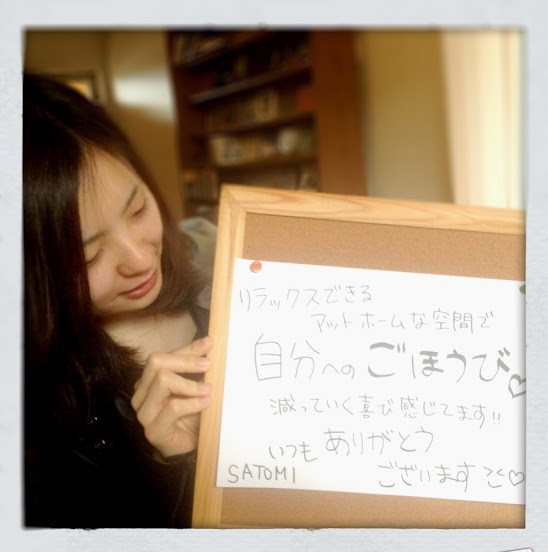 リラックスできる
アットホームな空間で
自分へのごほうび♡
減っていく喜び感じてます!!
いつもありがとう
ございます
SATOMI